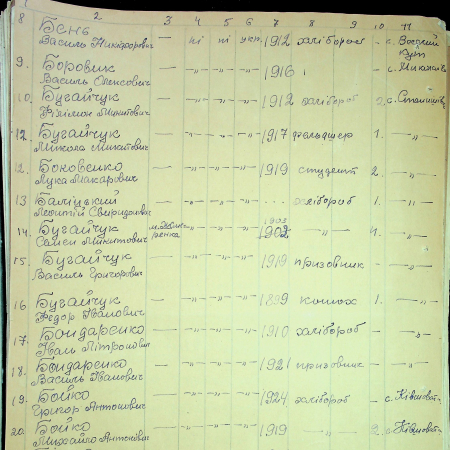 1 2 3 4 5 6 7 8 9 10 11
8 Бень
Василь Никифорович — ні ні укр. 1912 хлібороб — с. Вовчий Кут
9. Боровик
Василь Олексович — „ „ „ 1916 — с. Михайлів
10. Бугайчук
Філімон Микитович — „ „ „ 1912 хлібороб 2. с.
12. Бугайчук
Микола Микитович — „ „ „ 1917 фельдшер 1. — „ —
12. Боковенко
Лука Макарович — „ „ „ 1919 студент 2 — „ —
13 Баліцький
Леонтій Свиридович — „ „ „ ... хлібороб 1. — „ —
14. Бугайчук
Семен Микитович „ „ „ 1903 1902 — „ — 4. — „ —
15. Бугайчук
Василь Григорович — „ „ „ 1919 призовник — — „ —
16 Бугайчук
Федор Іванович — „ „ „ 1899 конюх 1. — „ —
17. Бондаренко
Іван Мітронович — „ „ „ 1910 хлібороб — — „ —
18. Бондаренко
Василь Іванович — „ „ „ 1921 призовник — — „ —
19. Бойко
Григор Антонович — „ „ „ 1924 хлібороб — с.
20. Бойко
Михайло Антонович — „ „ „ 1919 — „ — 2. с.